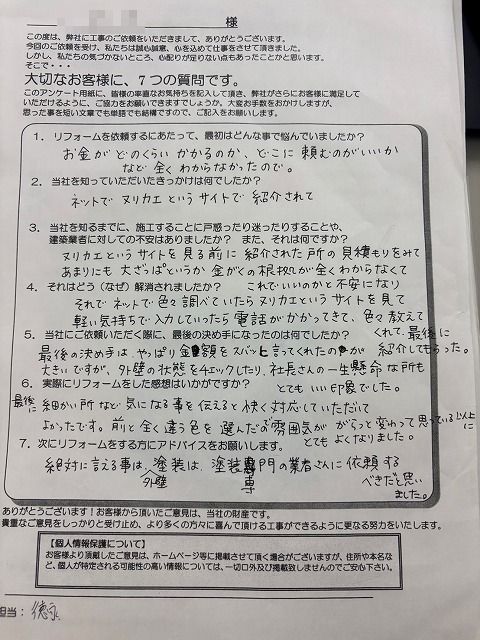 様
この度は、弊社に工事のご依頼をいただきまして、ありがとうございます。
今回のご依頼を受け、私たちは誠心誠意、心を込めて仕事をさせて頂きました。
しかし、私たちの気づかないところ、心配りが足りない点もあったことかと思います。
そこで・・・
大切なお客様に、７つの質問です。
このアンケート用紙に、皆様の率直なお気持ちを記入して頂き、弊社がさらにお客様に満足して
いただけるように、ご協力をお願いできますでしょうか。大変お手数をおかけしますが、
思った事を短い文章でも単語でも結構ですので、ご記入をお願いします。
１．リフォームを依頼するにあたって、最初はどんな事で悩んでいましたか？
お金がどのくらいかかるのか、どこに頼むのがいいか
など全くわからなかったので。
２．当社を知っていただいたきっかけは何でしたか？
ネットでヌリカエというサイトで紹介されて
３．当社を知るまでに、施工することに戸惑ったり迷ったりすることや、
建築業者に対しての不安はありましたか？　また、それは何ですか？
ヌリカエというサイトを見る前に紹介された所の見積もりをみて
あまりにも大ざっぱというか金がくの根拠が全くわからなくて
４．それはどう（なぜ）解消されましたか？　これでいいのかと不安になり
それでネットで色々調べていたらヌリカエというサイトを見て
軽い気持ちで入力していったら電話がかかってきて、色々教えて
５．当社にご依頼いただく際に、最後の決め手になったのは何でしたか？　くれて、最後に
最後の決め手は、やっぱり金額をズバッと言ってくれたのが　紹介してもらった。
大きいですが、外壁の状態をチェックしたり、社長さんの一生懸命な所も
６．実際にリフォームをした感想はいかがですか？　とてもいい印象でした。
最後に細かい所など気になる事を伝えると快く対応していただいて
よかったです。前と全く違う色を選んだの雰囲気ががらっと変わって思っている以上に
７．次にリフォームをする方にアドバイスをお願いします。　とてもよくなりました。
絶対に言える事は、外壁塗装は、塗装専門の業者さんに依頼する
べきだと思い
ました。
ありがとうございます！お客様から頂いたご意見は、当社の財産です。
貴重なご意見をしっかりと受け止め、より多くの方々に喜んで頂ける工事ができるように更なる努力をいたします。
【個人情報保護について】
お客様より頂戴したご意見は、ホームページ等に掲載させて頂く場合がございますが、住所や本名な
ど、個人が特定される可能性の高い情報については、一切口外及び掲載致しませんのでご安心下さい。
担当：徳永